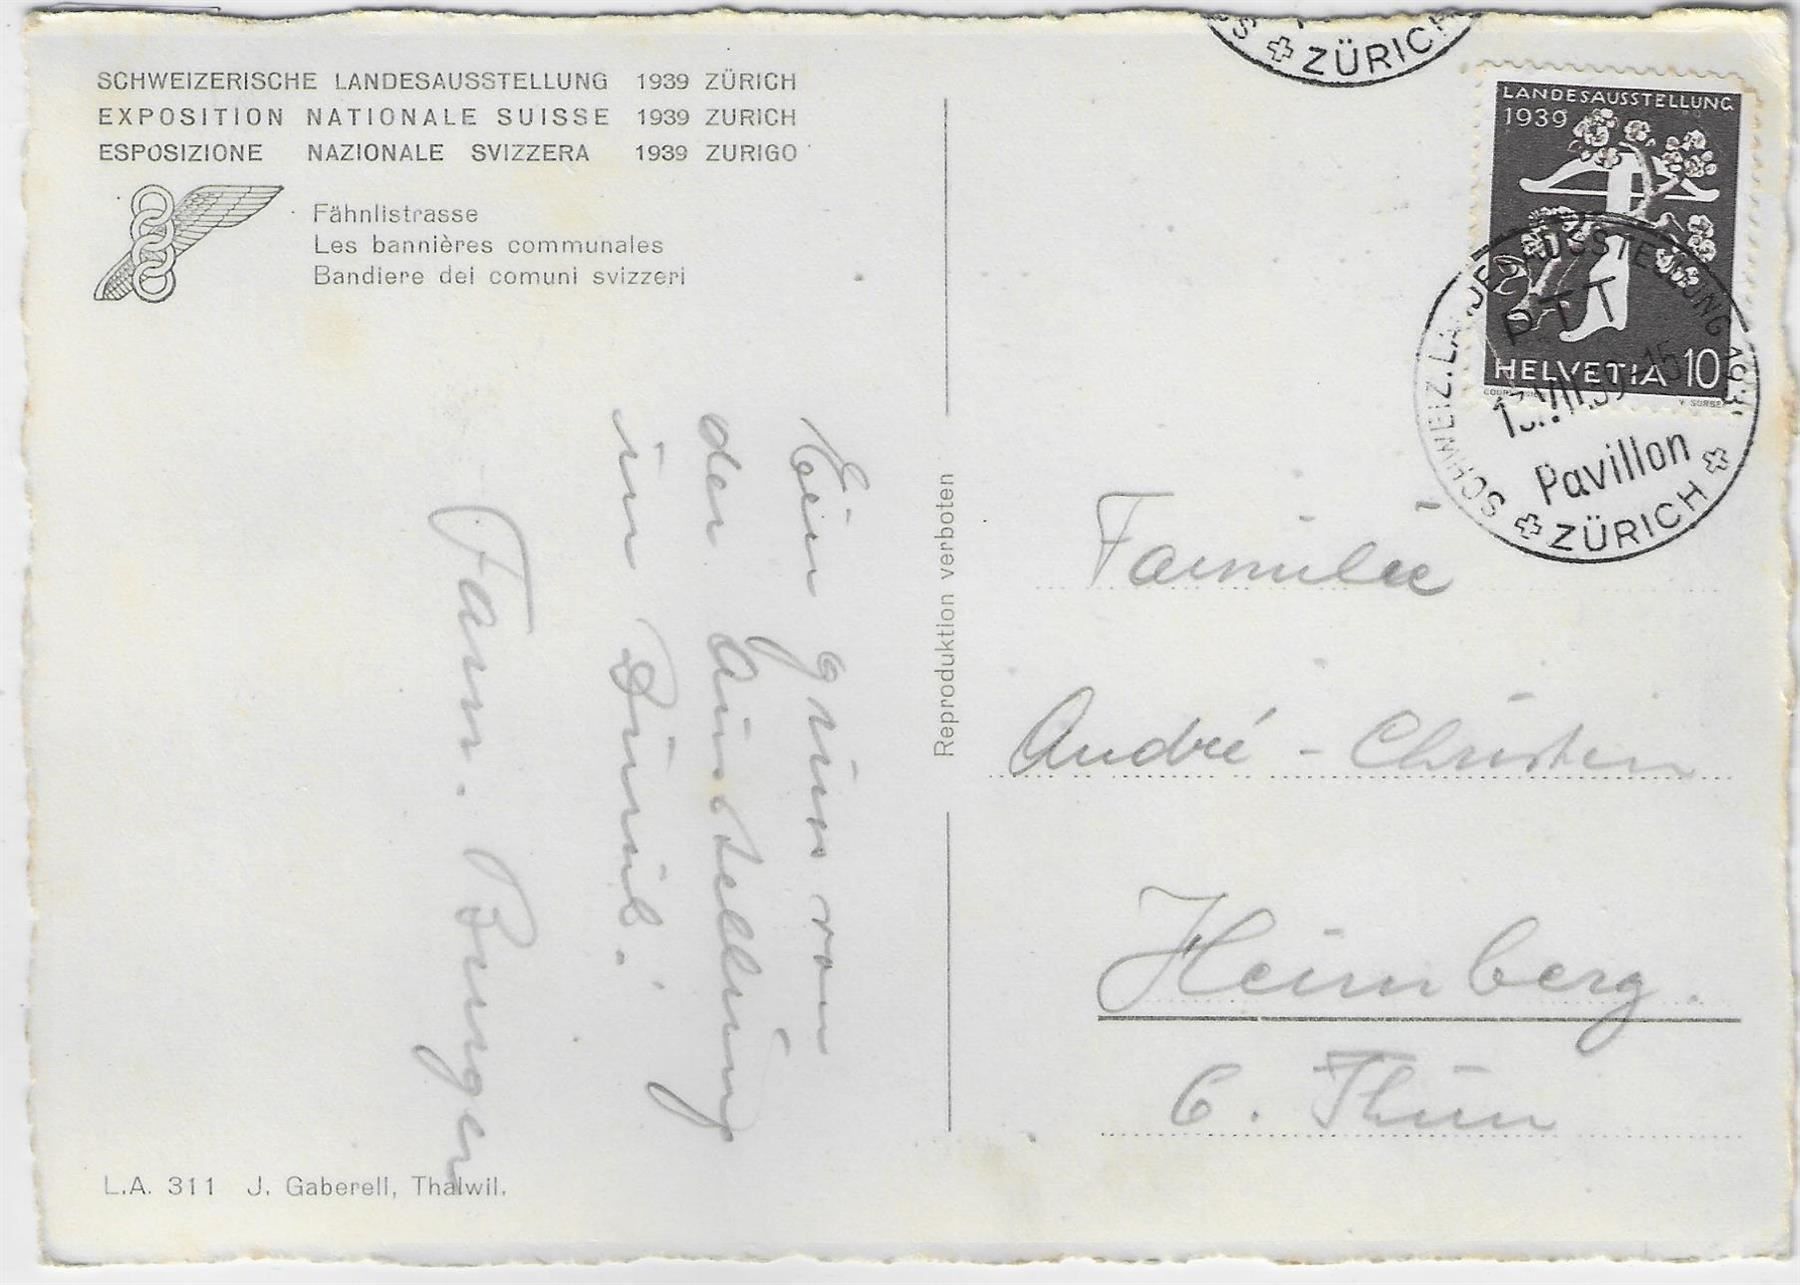 SCHWEIZERISCHE LANDESAUSSTELLUNG 1939 ZÜRICH
EXPOSITION NATIONALE SUISSE 1939 ZURICH
ESPOSIZIONE NAZIONALE SVIZZERA 1939 ZURIGO
Fähnlistrasse
Les bannières communales
Bandiere dei comuni svizzeri
Ein gruss von
der Ausstellung
in
Fam. Burger
L.A. 311 J. Gaberell, Thalwil.
Reproduktion verboten
ZÜRICH
LANDESAUSSTELLUNG
1939
HELVETIA 10
SCHWEIZ. LANDESAUSSTELLUNG 1939
PTT
Pavillon
ZÜRICH
Familie
André - Christen
Heimberg.
b. Thun